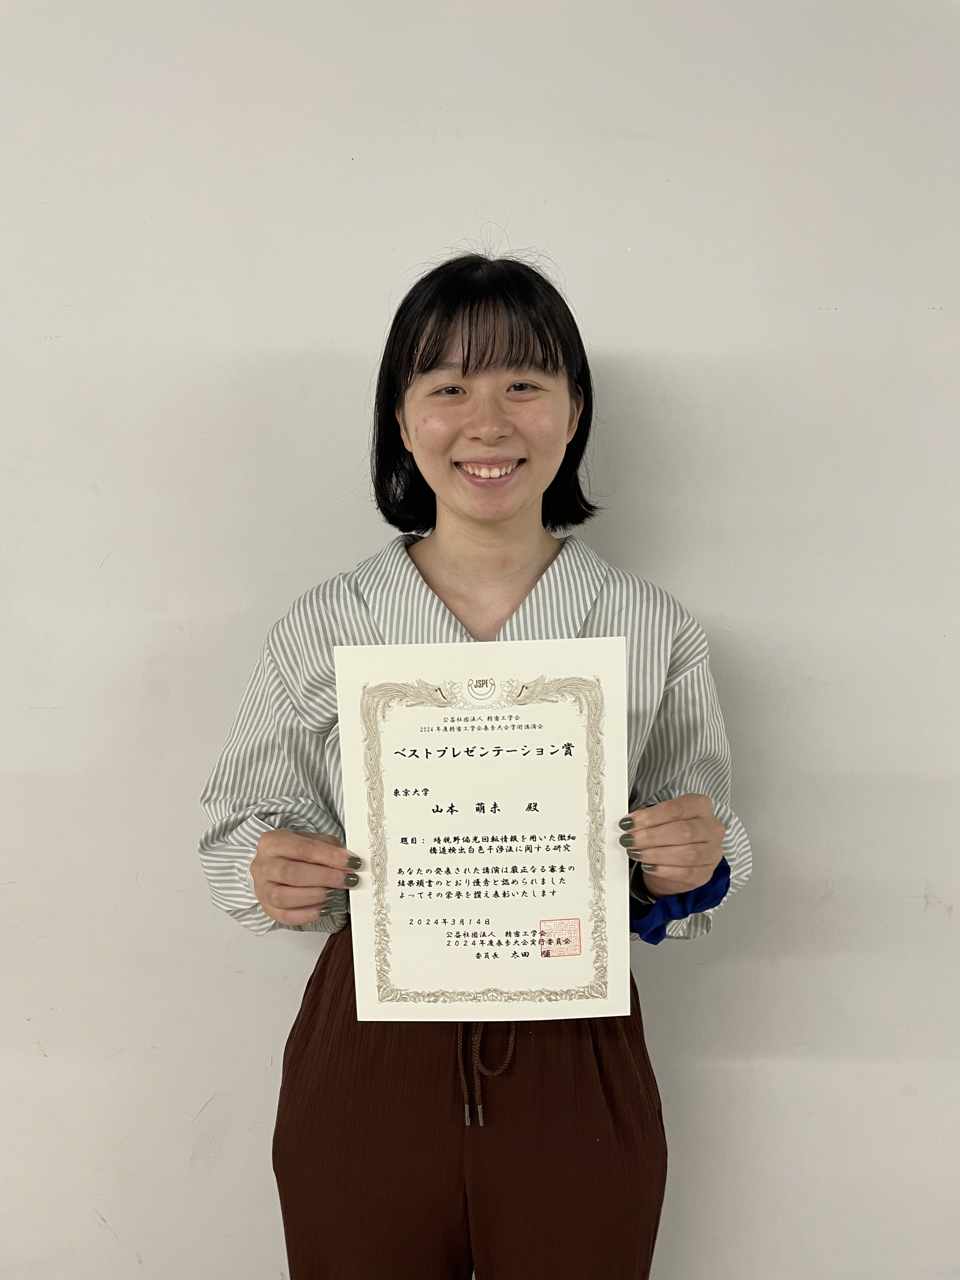 JSPE
公益社団法人 精密工学会
2024年度精密工学会春季大会学術講演会
ベストプレゼンテーション賞
東京大学
山本 萌未 殿
題目： 暗視野偏光回転情報を用いた微細
構造検出白色干渉法に関する研究
あなたの発表された講演は厳正なる審査の
結果頭書のとおり優秀と認められました
よってその栄誉を讃え表彰いたします
2024年3月14日
公益社団法人 精密工学会
2024年度春季大会実行委員会
委員長 太田 順